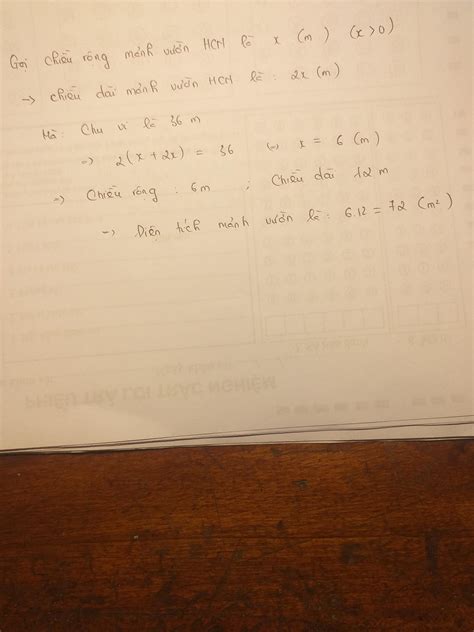 Gọi chiều rộng mảnh vườn HCN là x (m) (x>0)
→ chiều dài mảnh vườn HCN là : 2x (m)
Mà : Chu vi là 36 m
=> 2(x + 2x) = 36 <=> x = 6 (m)
=> Chiều rộng : 6m ; Chiều dài 12m
=> Diện tích mảnh vườn là : 6.12 = 72 (m²)
PHIẾU TRẢ LỜI TRẮC NGHIỆM